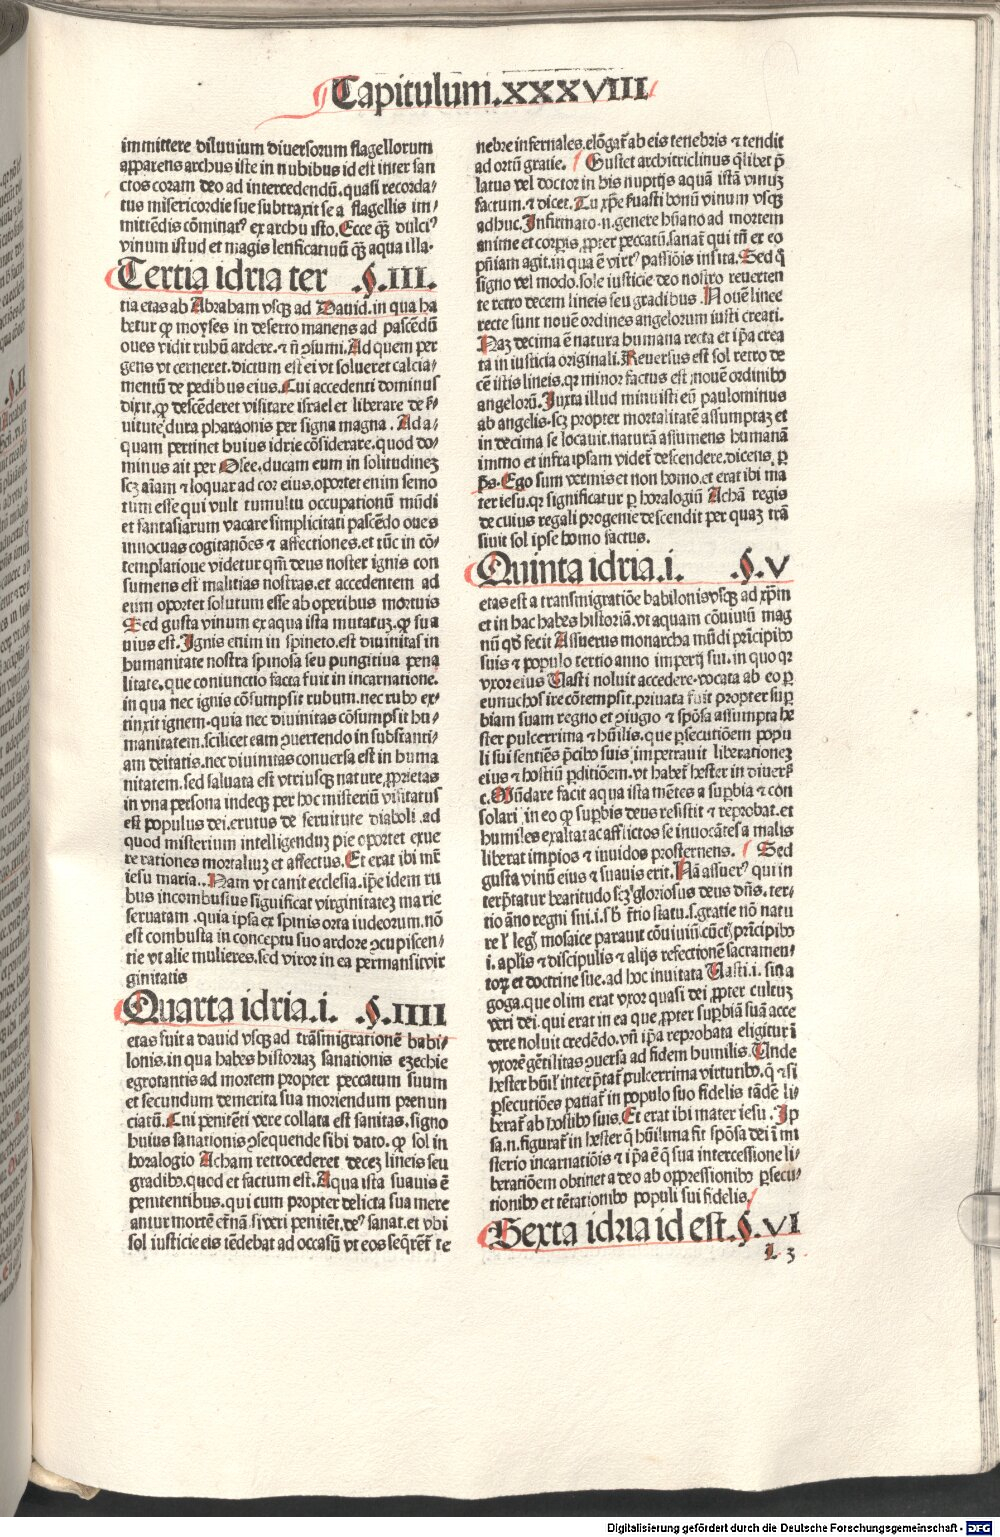 Capitulum.XXXVIII
immittere diluuium diuersorum flagellorum
apparens archus iste in nubibus id est inter san
ctos coram deo ad intercedendū.quasi recorda/
tus misericordie sue subtraxit se a flagellis im/
mittēdis cōminatꝰ ex archu isto.Ecce qꝫ dulciꝰ
vinum istud et magis letificatiuū qꝫ aqua illa.
Tertia idria ter .§.III.
tia etas ab Abraham vsqꝫ ad Dauid.in qua ha
betur ꝙ moyses in deserto manens ad pascēdū
oues vidit rubū ardere.⁊ nō ↄsumi.Ad quem per
gens vt cerneret.dictum est ei vt solueret calcia/
mentū de pedibus eius.Cui accedenti dominus
dixit.ꝙ descēderet visitare israel et liberare de s̄/
uitute dura pharaonis per signa magna . Ad a/
quam pertinet huius idrie cōsiderare.quod do/
minus ait per Osee.ducam eum in solitudinez
scꝫ aīam ⁊ loquar ad cor eius.oportet enim semo
tum esse qui vult tumultu occupationū mūdi
et fantasiarum vacare simplicitati pascēdo oues
innocuas cogitatiōes ⁊ affectiones.et tūc in cō/
templatioue videtur qm̄ deus noster ignis con
sumens est malitias nostras.et accedentem ad
eum oportet solutum esse ab operibus mortuis
Sed gusta vinum ex aqua ista mutatuz.ꝙ sua
uius est.Ignis enim in spineto.est diuinitas in
humanitate nostra spinosa seu pungitiua pena
litate.que coniunctio facta fuit in incarnatione.
in qua nec ignis cōsumpsit rubum.nec rubꝰ ex/
tinxit ignem.quia nec diuinitas cōsumpsit hu/
manitatem.scilicet eam ↄuertendo in substanti/
am deitatis.nec diuinitas conuersa est in huma
nitatem.sed saluata est vtriusqꝫ nature ꝓprietas
in vna persona indeqꝫ per hoc misteriū visitatus
est populus dei.erutus de seruitute diaboli .ad
quod misterium intelligenduz pie oportet exue
re rationes mortaliuz et affectus.Et erat ibi mr̄
iesu maria..Nam vt canit ecclesia.ip̄e idem ru
bus incombustus siguificat virginitatez marie
seruatam .quia ipsa ex spinis orta iudeorum.nō
est combusta in conceptu suo ardore ↄcupiscen/
tie vt alie mulieres.sed viror in ea permansit vir
ginitatis
Quarta idria.i. .§.IIII
etas fuit a dauid vsqꝫ ad trāsmigrationē babi/
lonis.in qua habes historiaz sanationis ezechie
egrotantis ad mortem propter peccatum suum
et secundum demerita sua moriendum prenun
ciatū.Cui penitēti vere collata est sanitas.signo
huius sanationis ↄsequende sibi dato. ꝙ sol in
horalogio Acham retrocederet decez lineis seu
gradibꝰ.quod et factum est.Aqua ista suauis ē
penitentibus.qui cum propter delicta sua mere
antur mortē et̄nā.si veri penitēt.deꝰ sanat.et vbi
sol iusticie eis tēdebat ad occasū vt eos seq̄ret̄ te
nebre infernales.elōgat̄ ab eis tenebris ⁊ tendit
ad ortū gratie. Gustet architriclinus q̄libet p̄
latus vel doctor in his nuptijs aquā istā vinuz
factum.⁊ dicet.Tu xp̄e s̄uasti bonū vinum vsqꝫ
adhuc.Infirmato.n.genere hūano ad mortem
anime et corp̄is ꝓpter peccatū.sanat̄ qui tn̄ ex eo
pn̄iam agit.in qua ē virtꝰ passiōis insita.Sed q̄
signo vel modo.sole iusticie deo nostro reuerten
te retro decem lineis seu gradibus .Nouē linee
recte sunt nouē ordines angelorum iusti creati.
Haz decima ē natura humana recta et ip̄a crea
ta in iusticia originali.Reuersus est sol retro de
cē istis lineis.qꝛ minor factus est nouē ordinibꝰ
angelorū.Iuxta illud minuisti eū paulominus
ab angelis.scꝫ propter mortalitatē assumptaz et
in decima se locauit.naturā assumens humanā
immo et infra ipsam videt̄ descendere.dicens. ꝑ
ps̄.Ego sum vermis et non homo.et erat ibi ma
ter iesu.qꝛ significatur ꝑ horalogiū Achaꝫ regis
de cuius regali progenie descendit per quaz trā
siuit sol ipse homo factus.
Quinta idria.i. .§.V
etas est a transmigratiōe babilonis vsqꝫ ad xp̄m
et in hac habes historiā.vt aquam cōuiuiū mag
nū qd̄ fecit Assuerus monarcha mūdi pr̄incipibꝰ
suis ⁊ populo tertio anno imperij sui.in quo qꝛ
vxor eius Vasti noluit accedere.vocata ab eo ꝑ
eunuchos ire cōtempsit.priuata fuit propter suꝑ
biam suam regno et ↄiugio ⁊ spōsa assumpta he
ster pulcerrima ⁊ hūilis.que ꝑsecutiōem popu
li sui sentiēs pn̄cibꝰ suis impetrauit liberationez
eius ⁊ hostiū ꝑditiōem.vt habet̄ hester in diuers̄
c.Mūdare facit aqua ista mētes a suꝑbia ⁊ con
solari in eo ꝙ suꝑbis deus resistit ⁊ reprobat.et
humiles exaltat ac afflictos se inuocātes a malis
liberat impios ⁊ inuidos prosternens. Sed
gusta vinū eius ⁊ suauis erit.Nā assuerꝰ qui in
terp̄tatur beatitudo scꝫ gloriosus deus dn̄s. ter/
tio āno regni sui.i.sb̄ t̄tio statu.s.gratie nō natu
re l̄ leg̃ mosaice parauit cōuiuiū cūct̃ pr̄incipibꝰ
i. apl̄is ⁊ discipulis ⁊ alijs refectionē sacramen/
toꝝ et doctrine sue.ad hoc inuitata Vasti.i. sina
goga.que olim erat vxor quasi dei ꝓpter cultuz
veri dei.qui erat in ea que ꝓpter suꝑbiā suā acce
dere noluit credēdo.vn̄ ip̄a reprobata eligitur ī
vxorē gētilitas ↄuersa ad fidem humilis.Unde
hester hūil̄ interp̄tat̄ pulcerrima virtutibꝰ.q̄ ⁊ si
ꝑsecutiōes patiat̄ in populo suo fidelis tādē li/
berat̄ ab hostibꝰ suis.Et erat ibi mater iesu . Ip
sa.n.figurat̄ in hester q̄ hūilima fit spōsa dei ī mi
sterio incarnatiōis ⁊ ip̄a ē q̄ sua intercessione li/
beratiōem obtinet a deo ab oppressionibꝰ ꝑsecu/
tionibꝰ et tētationibꝰ populi sui fidelis.
Sexta idria id est.§.VI
L 3
Digitalisierung gefördert durch die Deutsche Forschungsgemeinschaft - DFG